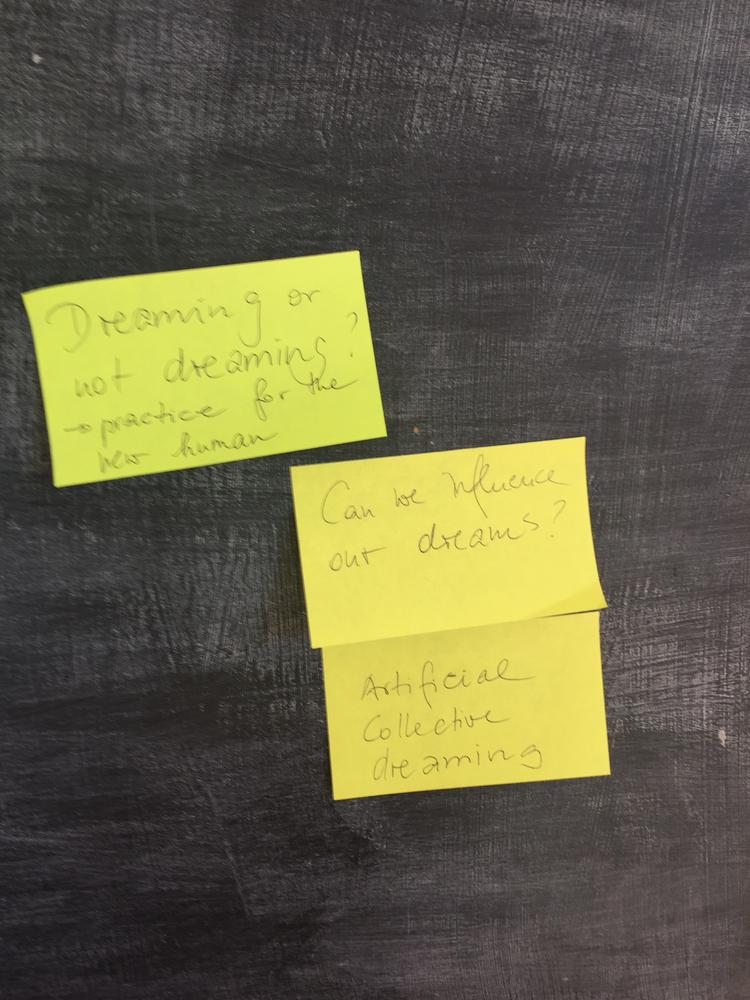 Dreaming or
not dreaming?
→ practice for the
new human
Can we influence
our dreams?
Artificial
Collective
dreaming